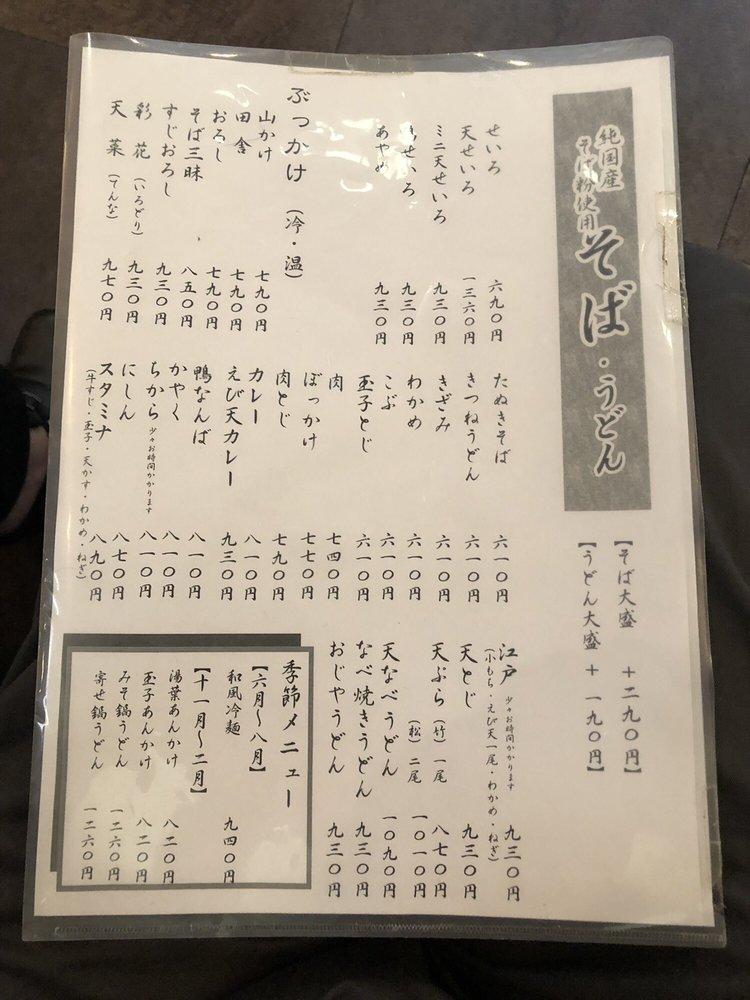 純国産
そば粉使用
そば・うどん
【そば大盛 ＋二九〇円】
【うどん大盛 ＋一九〇円】
せいろ 六九〇円
天せいろ 一三六〇円
ミニ天せいろ 九三〇円
せいろ 九三〇円
あやめ 九三〇円
ぶっかけ（冷・温）
山かけ 七九〇円
田舎 七九〇円
おろし 七九〇円
そば三昧 八五〇円
すじおろし 九三〇円
彩花（いろどり） 九三〇円
天菜（てんな） 九七〇円
たぬきそば 六一〇円
きつねうどん 六一〇円
きざみ 六一〇円
わかめ 六一〇円
こぶ 六一〇円
玉子とじ 六一〇円
肉 七四〇円
ぼっかけ 七七〇円
肉とじ 七九〇円
カレー 八一〇円
えび天カレー 九三〇円
鴨なんば 八一〇円
かやく 八一〇円
ちから 少々お時間かかります 八一〇円
にしん 八七〇円
スタミナ 八九〇円
（牛すじ・玉子・天かす・わかめ・ねぎ）
江戸 少々お時間かかります 九三〇円
（小もち・えび天一尾・わかめ・ねぎ）
天とじ 九三〇円
天ぷら（竹）一尾 八七〇円
（松）二尾 一〇一〇円
天なべうどん 一〇九〇円
なべ焼きうどん 九三〇円
おじやうどん 九三〇円
季節メニュー
【六月〜八月】
和風冷麺 九四〇円
【十一月〜二月】
湯葉あんかけ 八二〇円
玉子あんかけ 八二〇円
みそ鍋うどん 一二六〇円
寄せ鍋うどん 一二六〇円